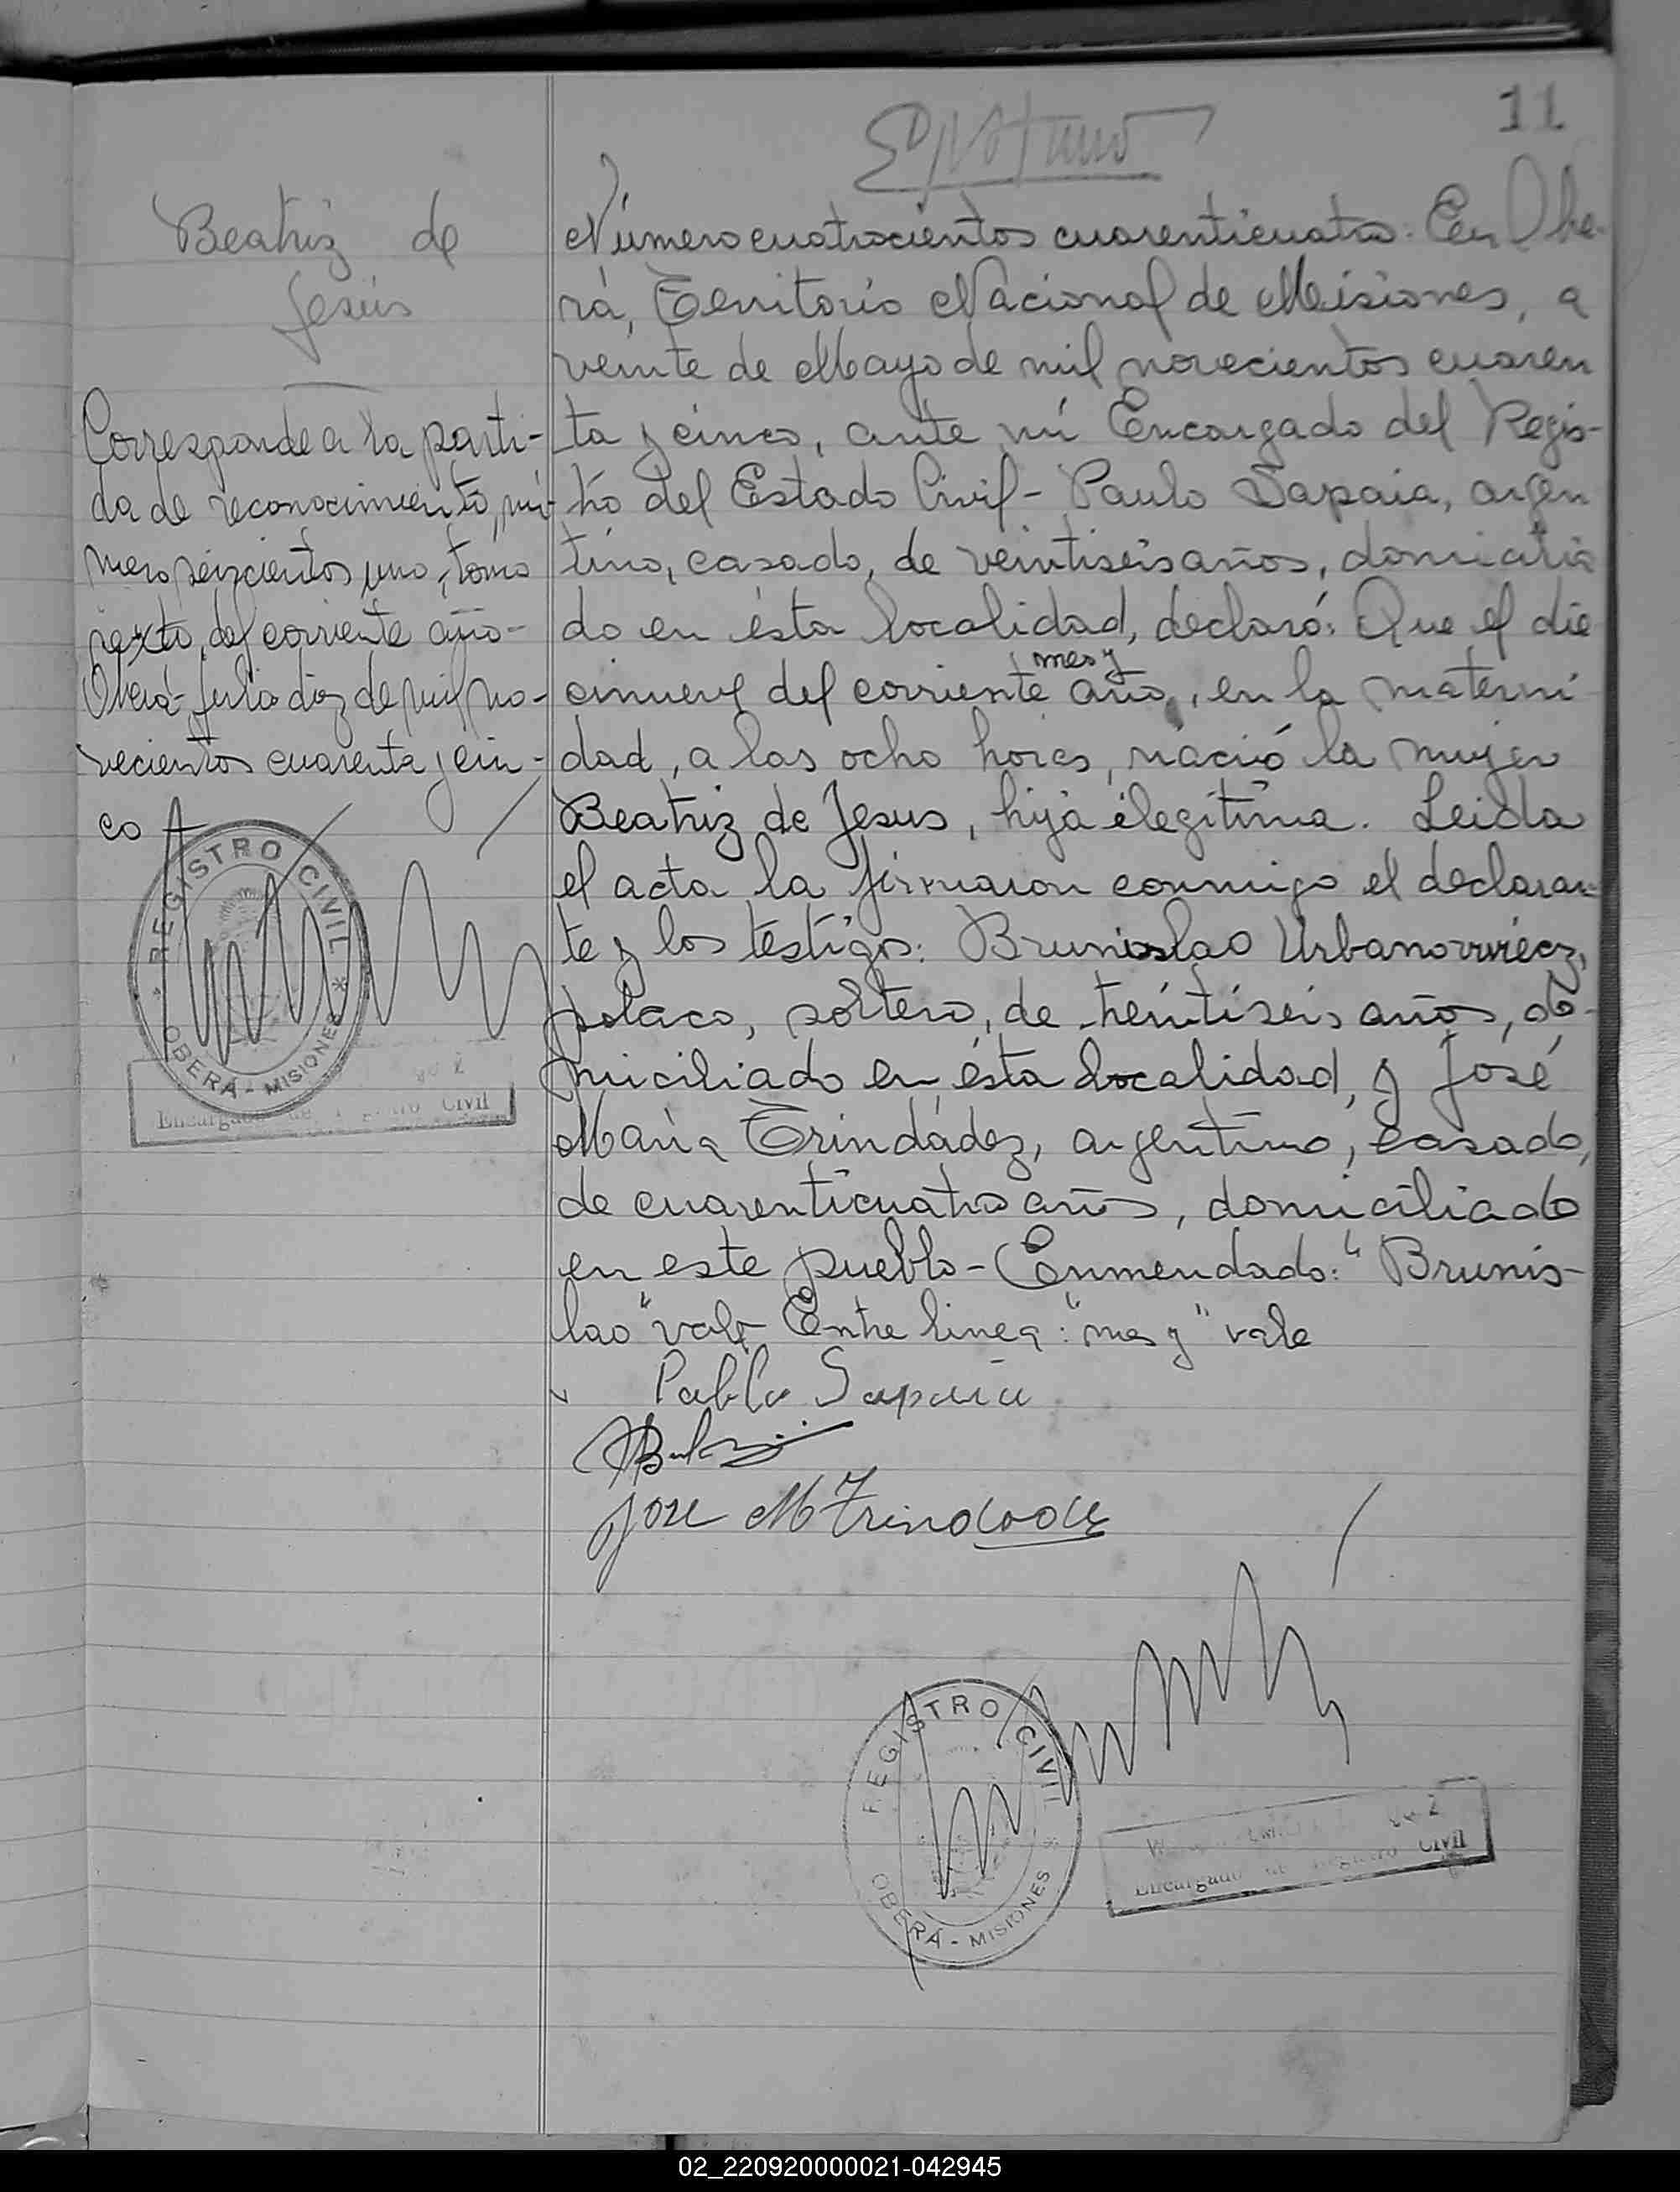 11
Beatriz de
Jesús
Corresponde a la parti-
da de reconocimiento, nú-
mero seiscientos uno, tomo
sexto, del corriente año-
Oberá- julio diez de mil no-
vecientos cuarenta y cin-
co
REGISTRO CIVIL
OBERÁ - MISIONES
Civil
Número cuatrocientos cuarenticuatro. En Obe-
rá, Territorio Nacional de Misiones, a
veinte de Mayo de mil novecientos cuaren
ta y cinco, ante mi Encargado del Regis-
tro del Estado Civil- Paulo Sapaia, argen
tino, casado, de veintiseis años, domicilia
do en ésta localidad, declaró: Que el die
cinueve del corriente mes y año, en la materni
dad, a las ocho horas, nació la mujer
Beatriz de Jesus, hija ilegitima. Leida
el acta la firmaron conmigo el declaran-
te y los testigos: Brunislao Urbanowiecz,
polaco, soltero, de treintiseis años, do-
miciliado en ésta localidad, y José
Maria Trindádez, argentino, casado,
de cuarenticuatro años, domiciliado
en este pueblo- Enmendado: "Brunis-
lao" vale- Entre linea: "mes y" vale
Pablo Sapaia
Jose M Trindade
REGISTRO CIVIL
OBERÁ - MISIONES
Encargado de Registro Civil
02_220920000021-042945